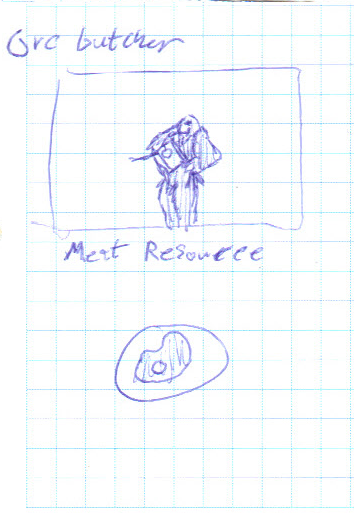 Orc butcher
Meat Resource